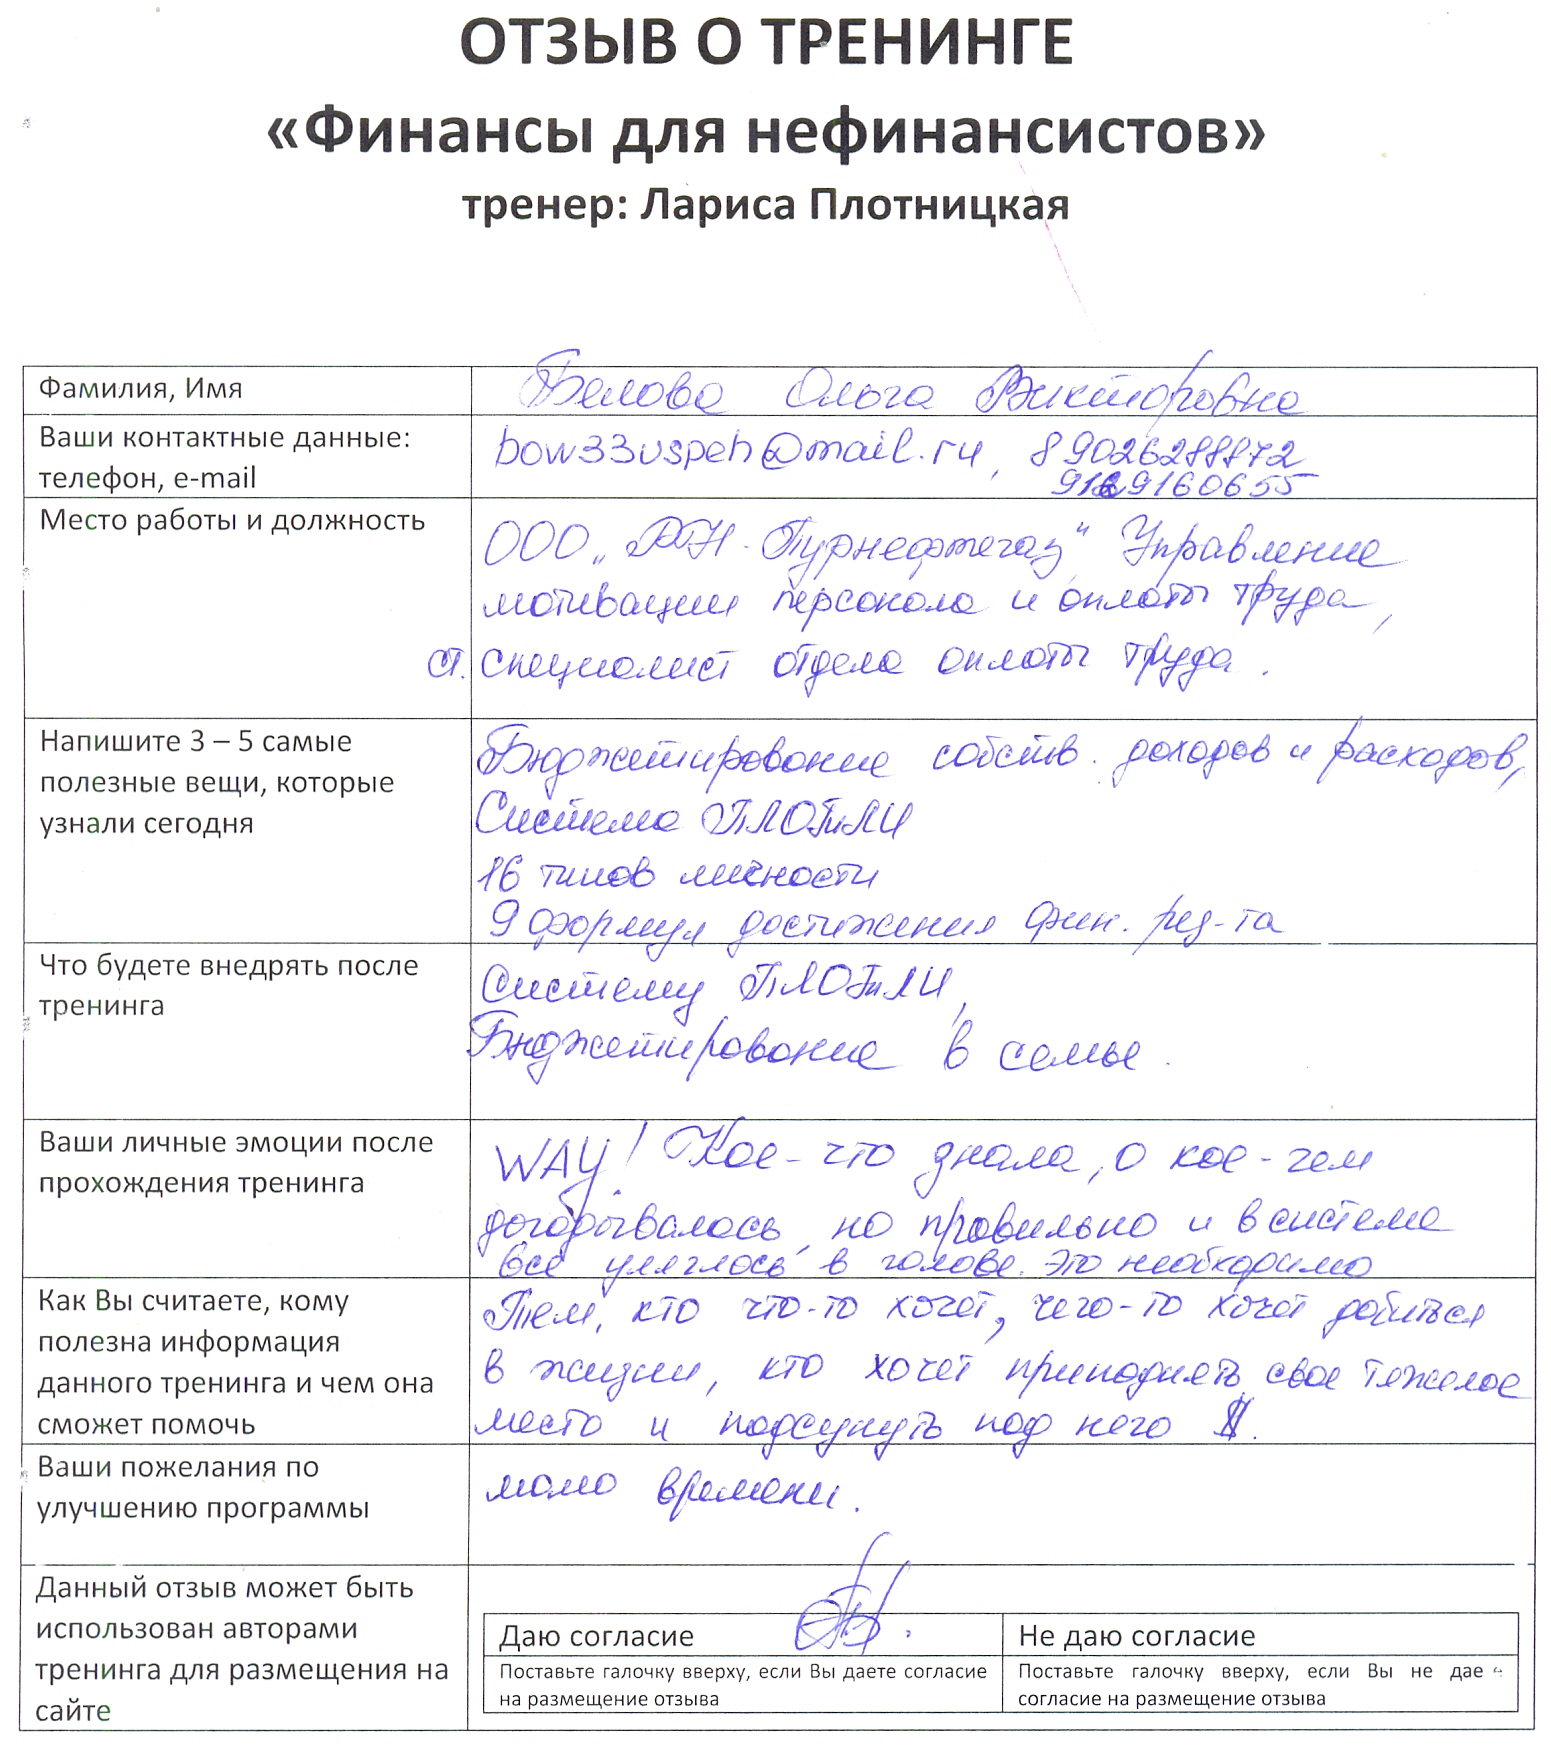 ОТЗЫВ О ТРЕНИНГЕ
«Финансы для нефинансистов»
тренер: Лариса Плотницкая
Фамилия, Имя
Белова Ольга Викторовна
Ваши контактные данные:
телефон, e-mail
bow33uspeh@mail.ru, 89026288872
9129160655
Место работы и должность
ООО „РН-Пурнефтегаз" Управление
мотивации персонала и оплаты труда,
ст. специалист отдела оплаты труда.
Напишите 3 – 5 самые
полезные вещи, которые
узнали сегодня
Бюджетирование собств. доходов и расходов,
Система ПЛОТиЛИ
16 типов личности
9 формул достижения фин. рез-та
Что будете внедрять после
тренинга
Систему ПЛОТиЛИ,
Бюджетирование в семье.
Ваши личные эмоции после
прохождения тренинга
WAY! Кое-что знала, о кое-чем
догадывалась, но правильно и в системе
все улеглось в голове. Это необходимо
Как Вы считаете, кому
полезна информация
данного тренинга и чем она
сможет помочь
Тем, кто что-то хочет, чего-то хочет добиться
в жизни, кто хочет приподнять свое тяжелое
место и подсунуть под него $.
Ваши пожелания по
улучшению программы
мало времени.
Данный отзыв может быть
использован авторами
тренинга для размещения на
сайте
Даю согласие
Поставьте галочку вверху, если Вы даете согласие
на размещение отзыва
Не даю согласие
Поставьте галочку вверху, если Вы не дае
согласие на размещение отзыва